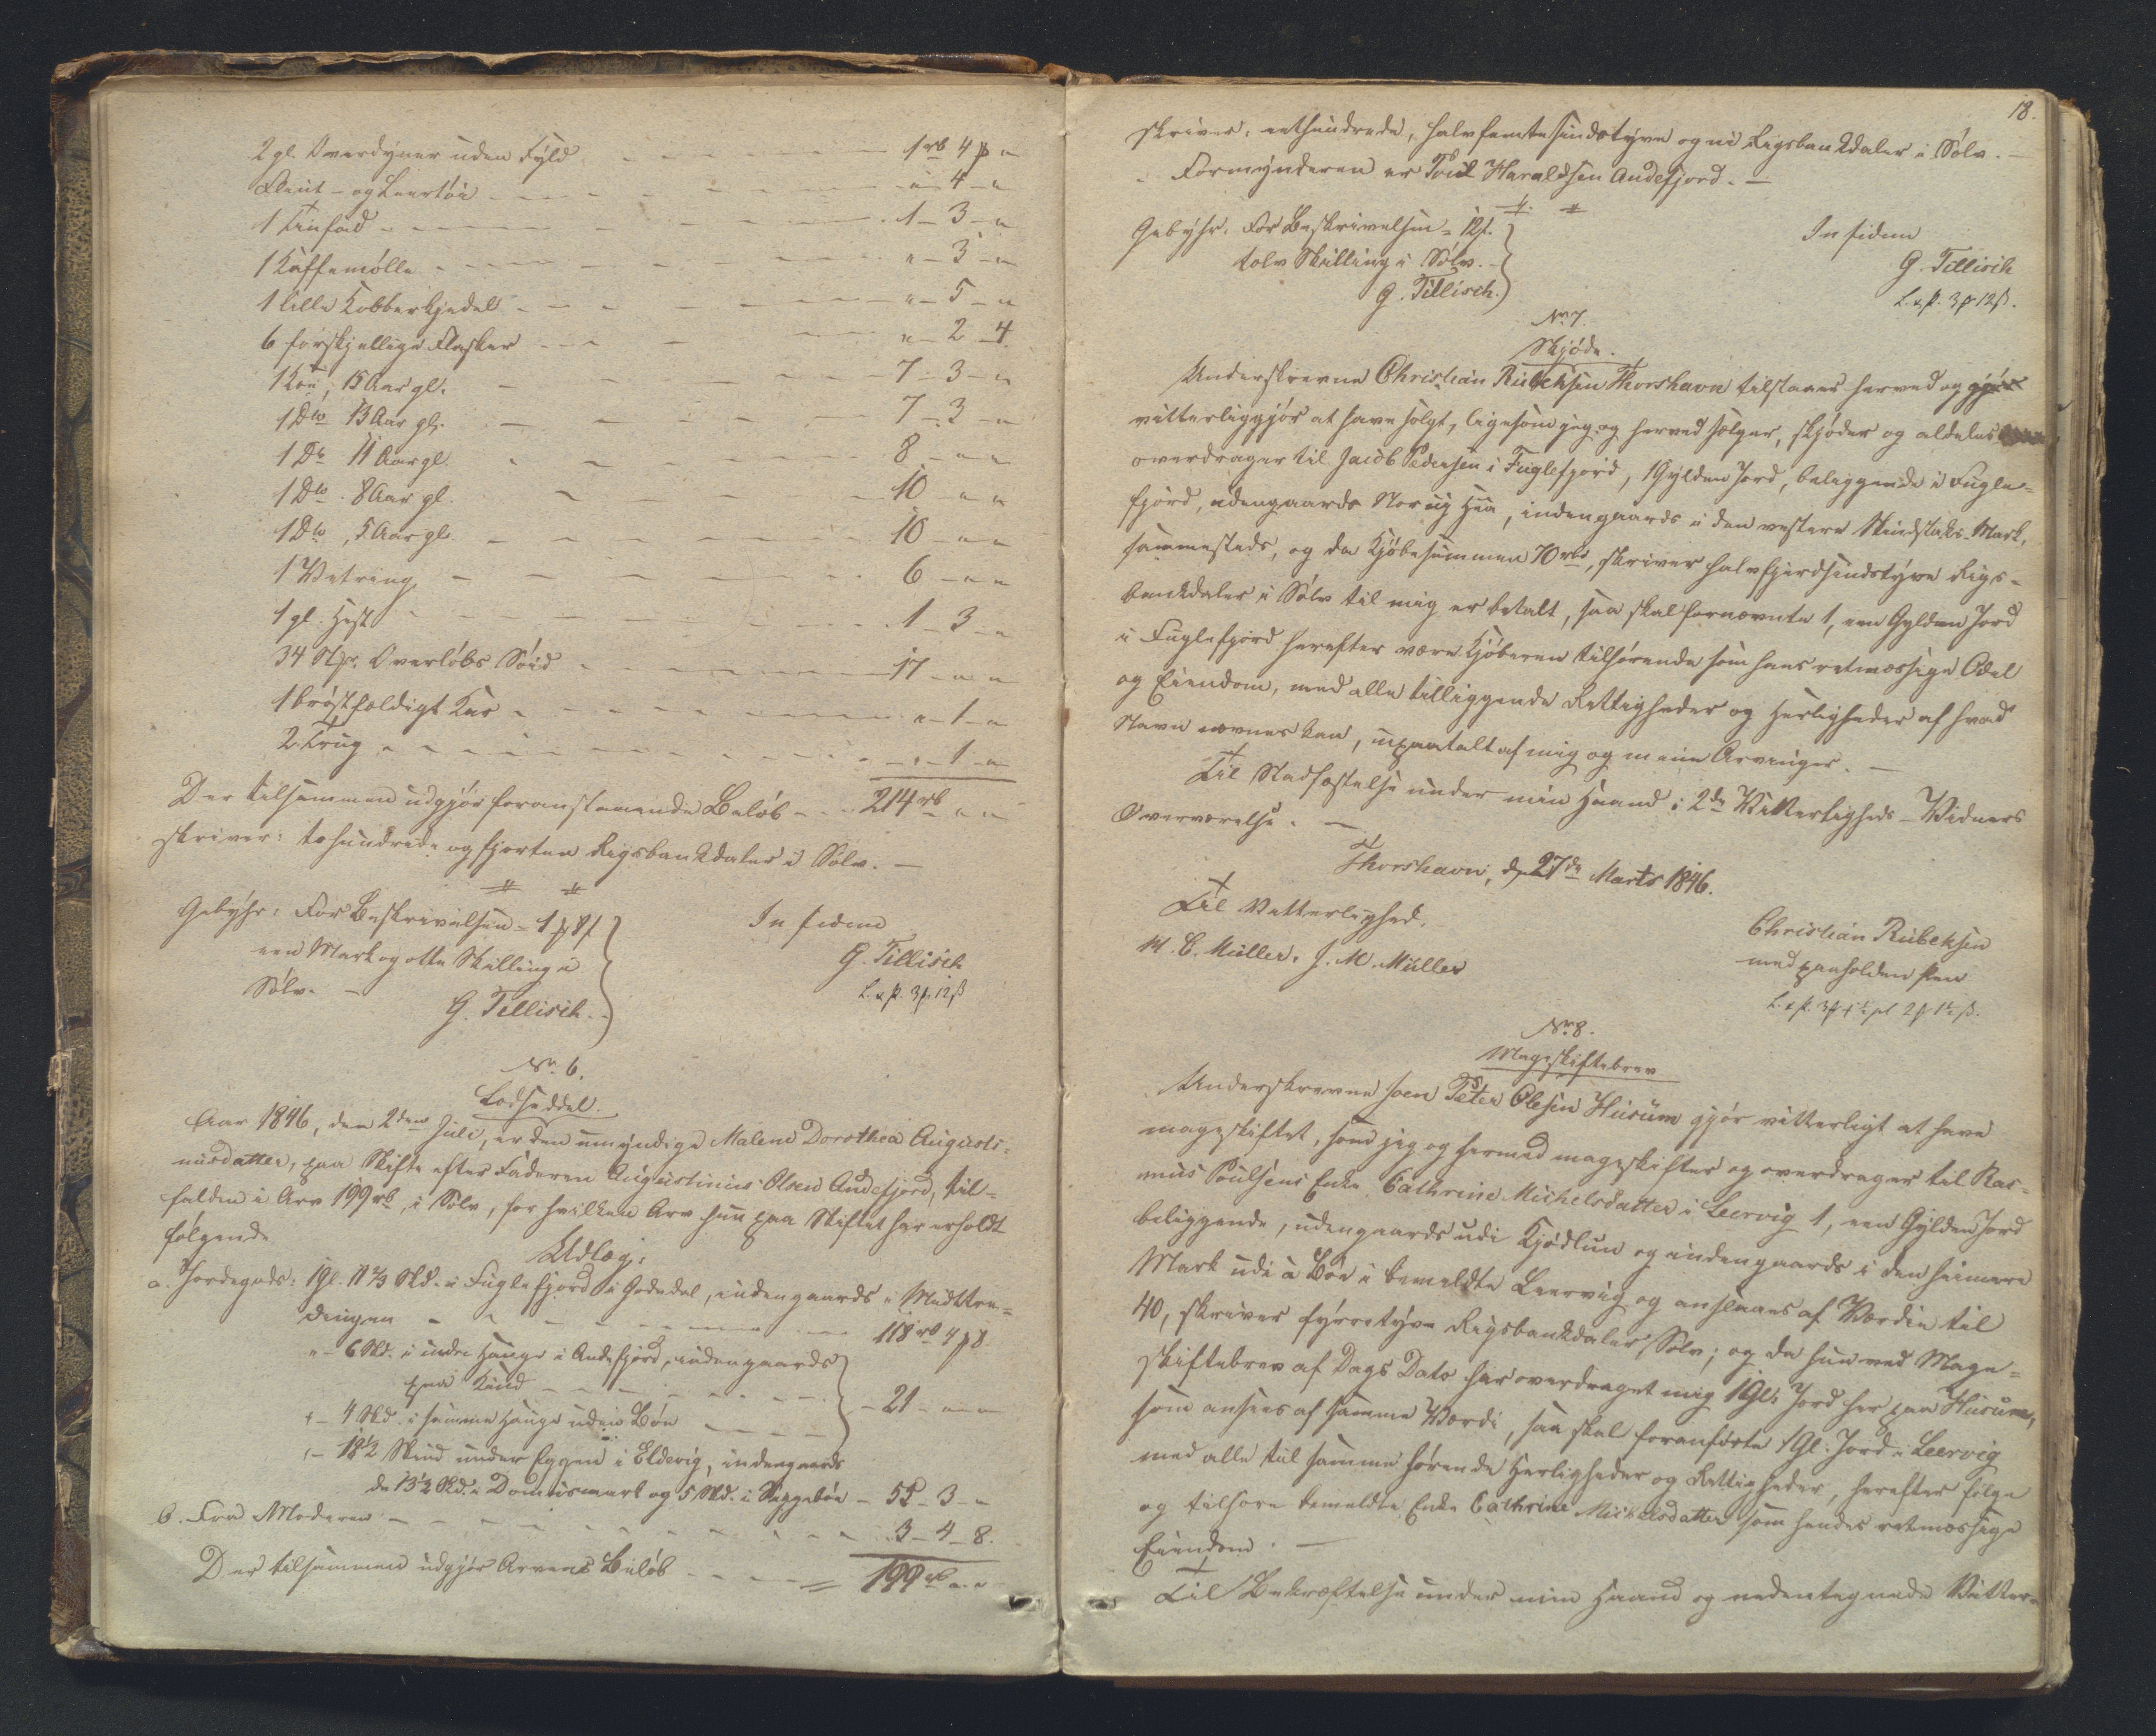 2 gl. Overdyner uden Fyld - - - 1 rb 4 ß "
Steint- og Leertöi - - - " 4 - "
1 Tinfad - - - 1 - 3 - "
1 Kaffemølle - - - " - 3 - "
1 lille Kobberkjedel - - - " - 5 - "
6 forskjellige Flasker - - - " - 2 - 4
1 Koe, 15 Aar gl. - - - 7 - 3 - "
1 Dto 13 Aar gl. - - - 7 - 3 - "
1 Dto 11 Aar gl. - - - 8 - " - "
1 Dto. 8 Aar gl. - - - 10 - " - "
1 Dto, 5 Aar gl. - - - 10 - " - "
1 Vetring - - - 6 - " - "
1 gl. Hest - - - 1 - 3 - "
34 Stkr. Overløbs Söid - - - 17 - " - "
1 brøstfældigt Kar - - - " - 1 - "
2 Trug - - - " - 1 - "
Der tilsammen udgjör foranstaaende Beløb - - - 214 rb " "
skriver: tohundrede og fjorten Rigsbankdaler i Sølv. -
Gebyhr: For Beskrivelsen = 1 ß 8 ſ
een Mark og otte Skilling i
Sølv. -
G. Tillisch.
In fidem
G. Tillisch
L. & P. 3 ß 12 ß
No. 6.
Lodseddel.
Aar 1846, den 2den Juli, er den umyndige Malene Dorothea Augusti-
nusdatter, paa Skifte efter Faderen Augustinus Olsen Andefjord, til-
falden i Arv 199 rb, i Sølv, for hvilken Arv hun paa Skiftet har erholdt
følgende
Udlæg:
a. Jordegods: 1 Gl. 11 2/3 Skd. i Fuglefjord i Godedal, indengaards i Midttre-
dingen - - - 118 rb 4 ß 8
" - 6 Skd. i indre Hauge i Andefjord, indengaards
paa Kund - - -
" - 4 Skd. i samme Hauge uden Böe - - - 21 - " - "
" - 18 1/2 Skind under Eggen i Eldevig, indengaards
de 13 1/2 Skd. i Domismark og 5 Skd. i Seggeböe - 55 - 3 - "
b. Fra Moderen - - - 3 - 4 - 8.
Der tilsammen udgjør Arvens Beløb - - - = 199 rb " "
18.
skriver: eethundrede, halvfemtesindstyve og ni Rigsbankdaler i Sølv. -
Formynderen er Poul Haraldsen Andefjord. -
Gebyhr: For Beskrivelsen = 12 ſ.
tolv Skilling i Sølv. -
G. Tillisch.
In fidem
G. Tillisch
L. & P. 3 ß 12 ß.
No. 7.
Skjøde.
Underskrevne Christian Rubeksen Thorshavn tilstaaer herved og gjør
vitterliggjør at have solgt, ligesom jeg og herved sælger, skjøder og aldeles
overdrager til Jacob Pedersen i Fuglefjord, 1 Gylden Jord, beliggende i Fugle-
fjord, udengaards Nor ug Hea, indengaards i den vestere Skindstaks-Mark,
sammesteds, og da Kjøbesummen 70 rbd, skriver halvfjerdsindstyve Rigs-
bankdaler i Sølv til mig er betalt, saa skal fornævnte 1, een Gylden Jord
i Fuglefjord herefter være Kjøberen tilhørende som hans retmæssige Odel
og Eiendom, med alle tilliggende Rettigheder og Herligheder af hvad
Navn nævnes kan, upaatalt af mig og mine Arvinger. -
Til Stadfæstelse under min Haand i 2de Vitterligheds-Vidners
Overværelse. -
Thorshavn, d. 27de Marts 1846.
Til Vitterlighed.
M. C. Müller. J. M. Müller
Christian Rubeksen
med paaholden Pen
L. & P. 3 ß + 1/2 pct 2 ß 1 1/2 ß.
No. 8.
Mageskiftebrev
Underskrevne Joen Peter Olesen Husum gjør vitterligt at have
mageskiftet, som jeg og hermed mageskifter og overdrager til Ras-
mus Poulsens Enke Cathrine Michelsdatter i Leervig 1, een Gylden Jord
beliggende, udengaards udi Kjødlun og indengaards i den heimere
Mark udi à Böe i bemeldte Leervig og ansleaes af Værdie til
40, skriver fyrretyve Rigsbankdaler Sølv; og da hun ved Mage-
skiftebrev af Dags Dato har overdraget mig 1 Gl. Jord her paa Husum,
som ansees af samme Værdi, saa skal foranførte 1 Gl. Jord i Leervig
med alle til samme hørende Herligheder og Rettigheder, herefter følge
og tilhøre bemeldte Enke Cathrine Michelsdatter som hendes retmæssige
Eiendom. -
Til Bekræftelse under min Haand og undertegnede Vitter-